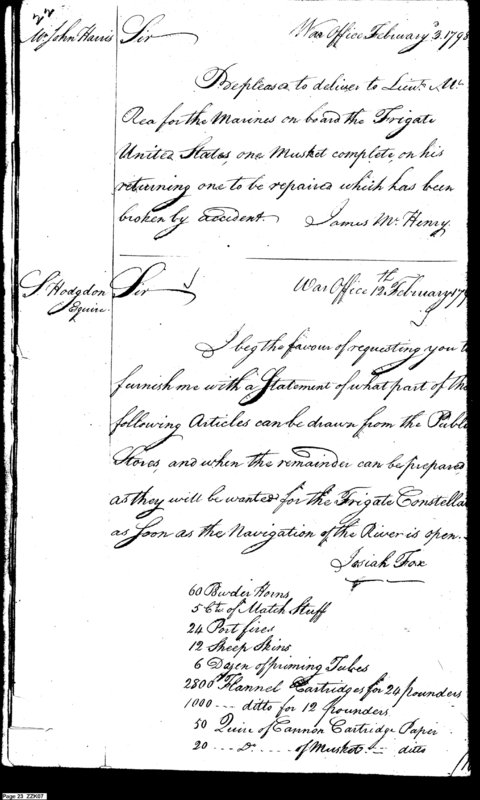 22
Mr. John Harris Sir War Office February 3. 1798
Be pleased to deliver to Lieut. Mc.
Rea for the Marines on board the Frigate
United States, one Musket complete on his
returning one to be repaired which has been
broken by accident. James Mc. Henry.
S. Hodgdon Esquire. Sir War Office 12th. February 179
I beg the favour of requesting you to
furnish me with a Statement of what part of the
following Articles can be drawn from the Publi
Stores, and when the remainder can be prepared,
as they will be wanted for the Frigate Constella
as soon as the Navigation of the River is open.
Josiah Fox
60 Powder Horns
5 Ct. of Match Stuff
24 Port fires
12 Sheep Skins
6 Dozen of priming Tubes
2800 Flannel Cartridges for 24 pounders
1000 --- ditto for 12 pounders
50 Quire of Cannon Cartridge Paper
20 --- Do. --- of Musket --- ditto
Page 23 ZZK07